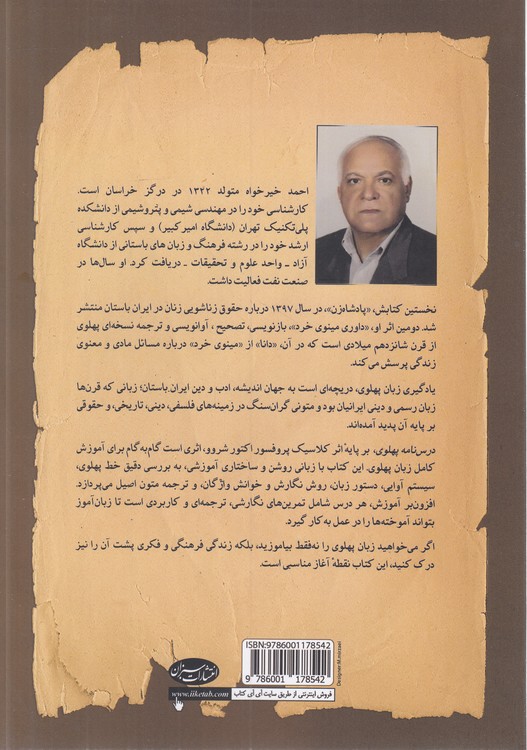 احمد خیرخواه متولد ۱۳۲۲ در درگز خراسان است.
کارشناسی خود را در مهندسی شیمی و پتروشیمی از دانشکده
پلی‌تکنیک تهران (دانشگاه امیرکبیر) و سپس کارشناسی
ارشد خود را در رشته فرهنگ و زبان های باستانی از دانشگاه
آزاد ـ واحد علوم و تحقیقات ـ دریافت کرد. او سال‌ها در
صنعت نفت فعالیت داشت.
نخستین کتابش، «پادشاه‌زن»، در سال ۱۳۹۷ درباره حقوق زناشویی زنان در ایران باستان منتشر
شد. دومین اثر او، «داوری مینوی خرد»، بازنویسی، تصحیح ، آوانویسی و ترجمه نسخه‌ای پهلوی
از قرن شانزدهم میلادی است که در آن، «دانا» از «مینوی خرد» درباره مسائل مادی و معنوی
زندگی پرسش می‌کند.
یادگیری زبان پهلوی، دریچه‌ای است به جهان اندیشه، ادب و دین ایران باستان؛ زبانی که قرن‌ها
زبان رسمی و دینی ایرانیان بود و متونی گران‌سنگ در زمینه‌های فلسفی، دینی، تاریخی، و حقوقی
بر پایه آن پدید آمده‌اند.
درس‌نامه پهلوی، بر پایه اثر کلاسیک پروفسور اکتور شروو، اثری است گام‌به‌گام برای آموزش
کامل زبان پهلوی. این کتاب با زبانی روشن و ساختاری آموزشی، به بررسی دقیق خط پهلوی،
سیستم آوایی، دستور زبان، روش نگارش و خوانش واژگان، و ترجمه متون اصیل می‌پردازد.
افزون‌بر آموزش، هر درس شامل تمرین‌های نگارشی، ترجمه‌ای و کاربردی است تا زبان‌آموز
بتواند آموخته‌ها را در عمل به کار گیرد.
اگر می‌خواهید زبان پهلوی را نه‌فقط بیاموزید، بلکه زندگی فرهنگی و فکری پشت آن را نیز
درک کنید، این کتاب نقطهٔ آغاز مناسبی است.
ISBN:9786001178542
9 786001 178542
فروش اینترنتی از طریق سایت آی آی کتاب
Designer:M.mirzaei
انتشارات سبزان
www.iiketab.com